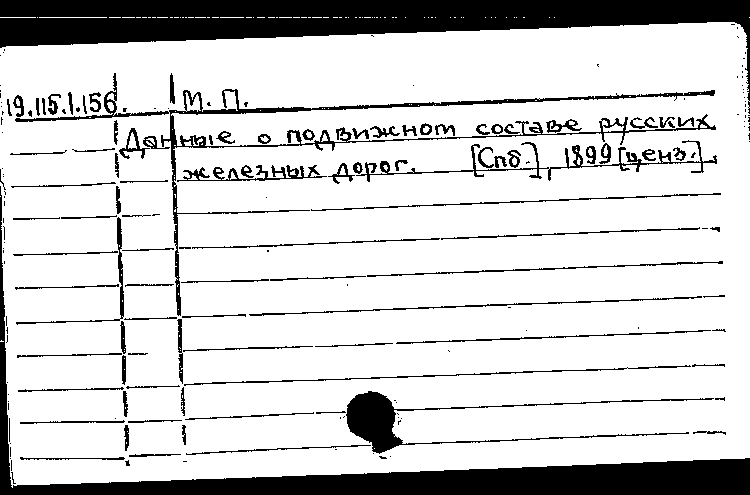 19.115.1.156. М. П.
Данные о подвижном составе русских
железных дорог. [Спб.], 1899 [ценз.].